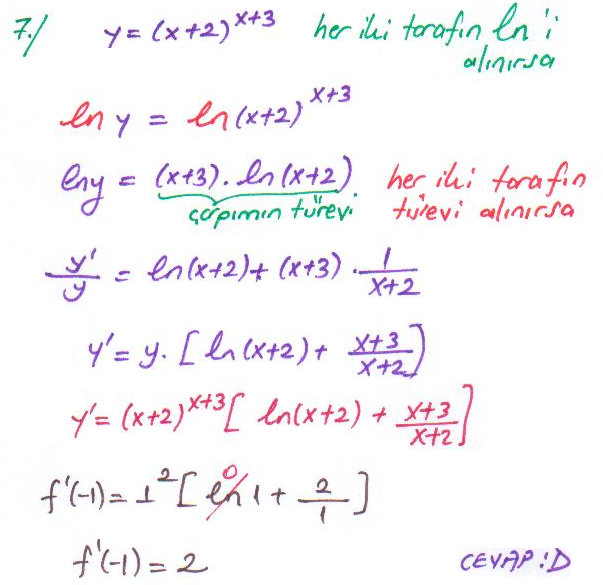 7./ y = (x+2)^x+3 her iki tarafın ln'i
alınırsa
ln y = ln (x+2)^x+3
lny = (x+3). ln (x+2) her iki tarafın
çarpımın türevi türevi alınırsa
y'/y = ln (x+2) + (x+3) . 1/x+2
y' = y. [ ln (x+2) + x+3/x+2 ]
y' = (x+2)^x+3 [ ln(x+2) + x+3/x+2 ]
f'(-1) = 1^2 [ ln 1 0 + 2/1 ]
f'(-1) = 2 CEVAP : D